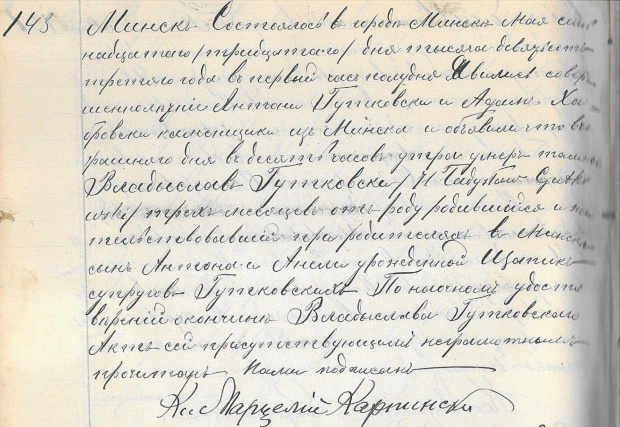 143 Минскъ Состоялось въ городѣ Минскѣ Мая сем
надцатаго /тридцатаго/ дня тысяча девятьсотъ
третьяго года въ первый часъ полудня Явились совер
шеннолѣтніе Антони Гутковски и Адамъ
каменщики изъ Минска и объявили что вче
рашняго дня въ десять часовъ утра умеръ тамже
Владыславъ Гутковски /Władysław Gutko
wski/ трехъ мѣсяцевъ отъ роду родившійся и жи
тельствовавшій при родителяхъ въ Минскѣ
сынъ Антона и Анели урожденной
супруговъ Гутковскихъ По наочномъ удосто
вѣреніи окончины Владыслава Гутковскаго
Актъ сей присутствующимъ неграмотнымъ
прочитанъ Нами подписанъ
Кс Марцелій Карпински